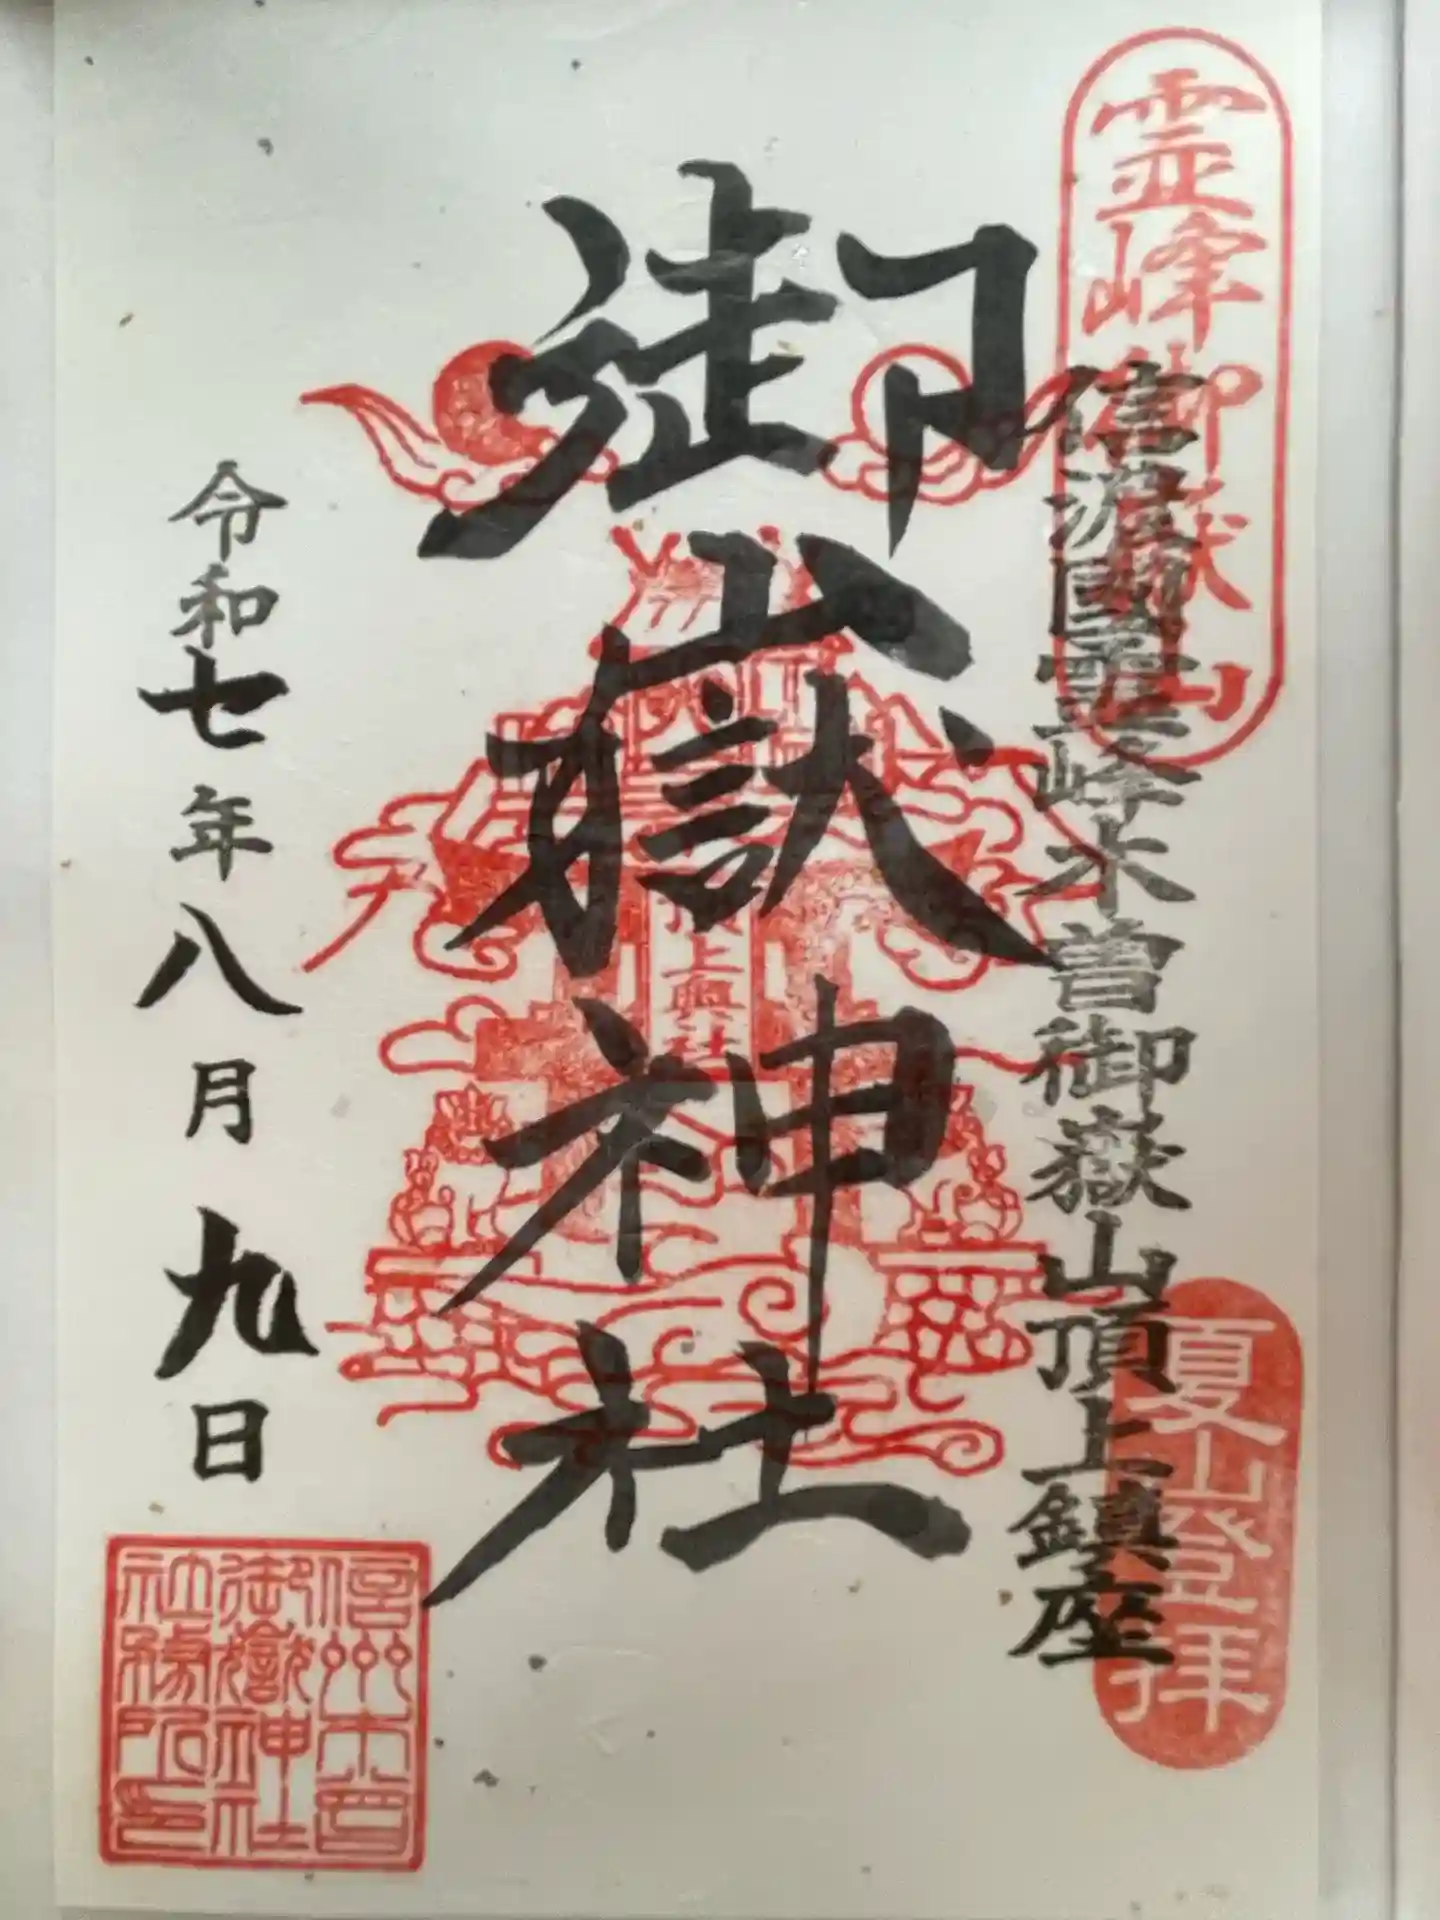 霊峰御嶽山
信濃國霊峰木曽御嶽山頂上鎮座
夏山登拝
御嶽神社
頂上奥社
令和七年八月九日
信州木曽
御嶽神社
社務所印